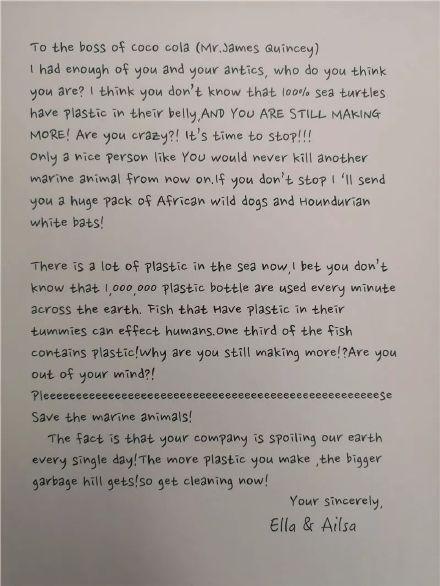 To the boss of coco cola (Mr.James Quincey)
I had enough of you and your antics, who do you think
you are? I think you don't know that 100% sea turtles
have plastic in their belly,AND YOU ARE STILL MAKING
MORE! Are you crazy?! It's time to stop!!!
Only a nice person like YOU would never kill another
marine animal from now on.If you don't stop I 'll send
you a huge pack of African wild dogs and Houndurian
white bats!

There is a lot of plastic in the sea now,I bet you don't
know that 1,000,000 plastic bottle are used every minute
across the earth. Fish that Have plastic in their
tummies can effect humans.One third of the fish
contains plastic!Why are you still making more!?Are you
out of your mind?!
Pleeeeeeeeeeeeeeeeeeeeeeeeeeeeeeeeeeeeeeeeeeeeeeeeeese
Save the marine animals!
The fact is that your company is spoiling our earth
every single day!The more plastic you make ,the bigger
garbage hill gets!so get cleaning now!
Your sincerely,
Ella & Ailsa